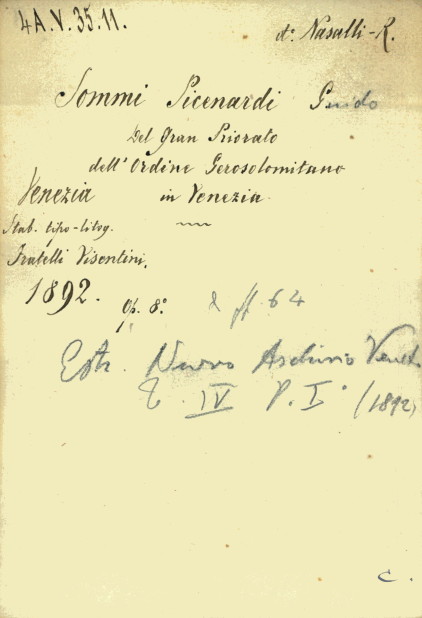 4A.V.35.11.
d: Nasalli-R.
Sommi Picenardi Guido
Del Gran Priorato
dell'Ordine Gerosolomitano
Venezia in Venezia
Stab. tipo-litog.
Fratelli Visentini,
1892.
Op. 8°. 64
Estr. Nuovo Archivio Veneto
T. IV P. I° (1892)
C.